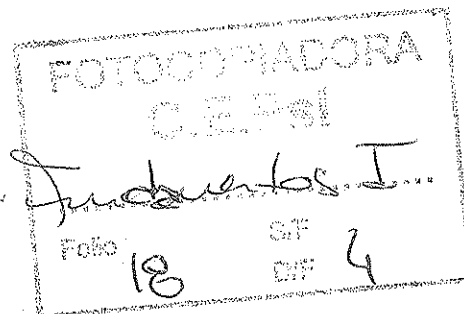 FOTOCOPIADORA
C.E.Psi
Fundamentos I
Folio 18 S/F
D/F 4